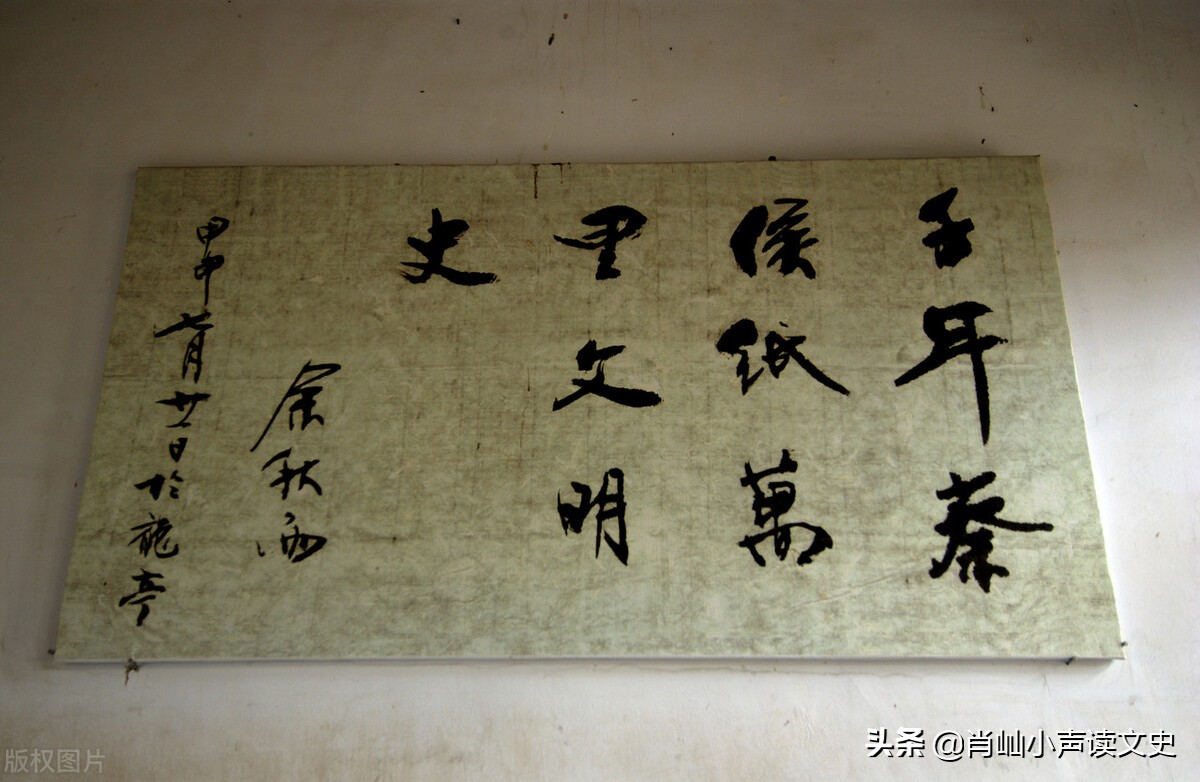 千年蔡
侯紙萬
里文明
史
余秋雨
甲申七月廿一日於龍亭
版权图片
头条 @肖屾小声读文史